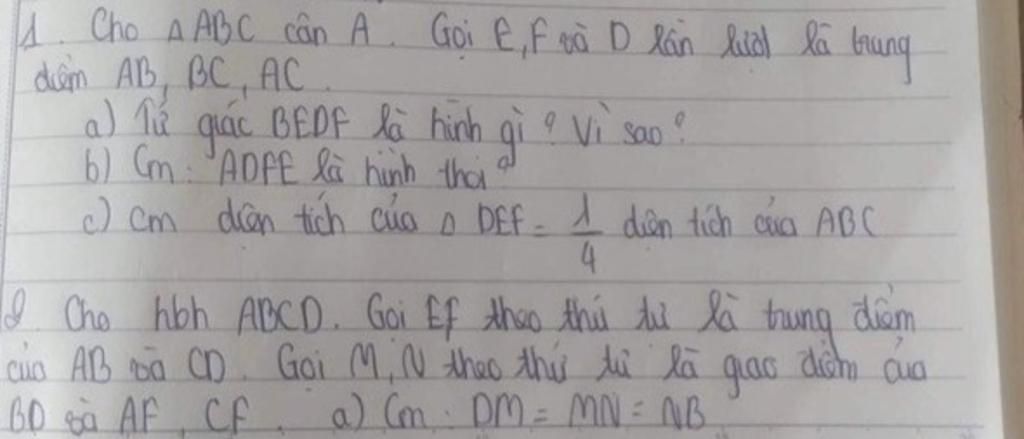 1. Cho Δ ABC cân A. Gọi E, F và D lần lượt là trung
điểm AB, BC, AC.
a) Tứ giác BEDF là hình gì? Vì sao?
b) Cm: ADFE là hình thoi
c) Cm diện tích của Δ DEF = 1/4 diện tích của ABC
2. Cho hbh ABCD. Gọi EF theo thứ tự là trung điểm
của AB và CD. Gọi M, N theo thứ tự là giao điểm của
BD và AF, CF. a) Cm: DM = MN = NB